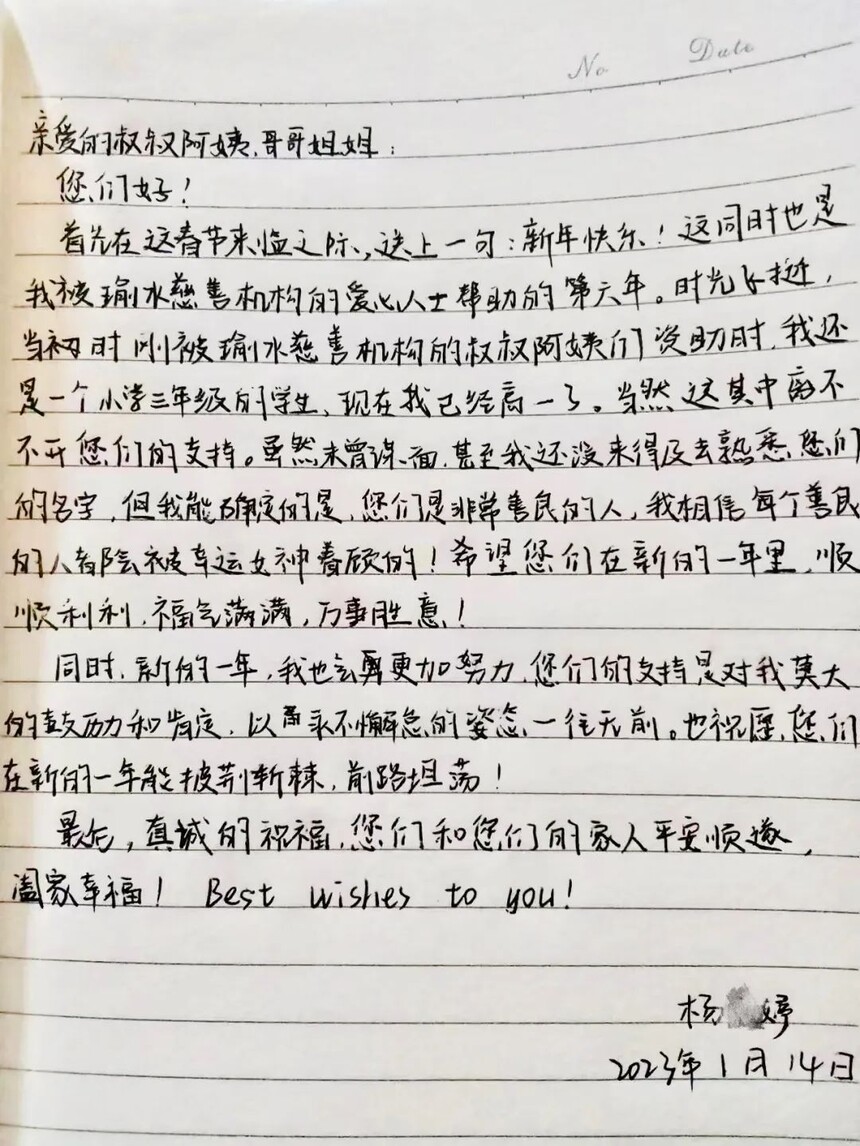 No Date
亲爱的叔叔阿姨、哥哥姐姐：
您们好！
首先在这春节来临之际，送上一句：新年快乐！这同时也是
我被瑜水慈善机构的爱心人士帮助的第六年。时光飞逝，
当初时刚被瑜水慈善机构的叔叔阿姨们资助时，我还
是一个小学三年级的学生，现在我已经高一了。当然这其中离不
不开您们的支持。虽然未曾谋面，甚至我还没来得及去熟悉您们
的名字，但我能确定的是，您们是非常善良的人，我相信每个善良
的人都会被幸运女神眷顾的！希望您们在新的一年里，顺
顺利利，福气满满，万事胜意！
同时，新的一年，我也会更加努力，您们的支持是对我莫大
的鼓励和肯定，以永不懈怠的姿态一往无前。也祝愿您们
在新的一年能披荆斩棘，前路坦荡！
最后，真诚的祝福，您们和您们的家人平安顺遂，
阖家幸福！ Best wishes to you!
杨 婷
2023年1月14日